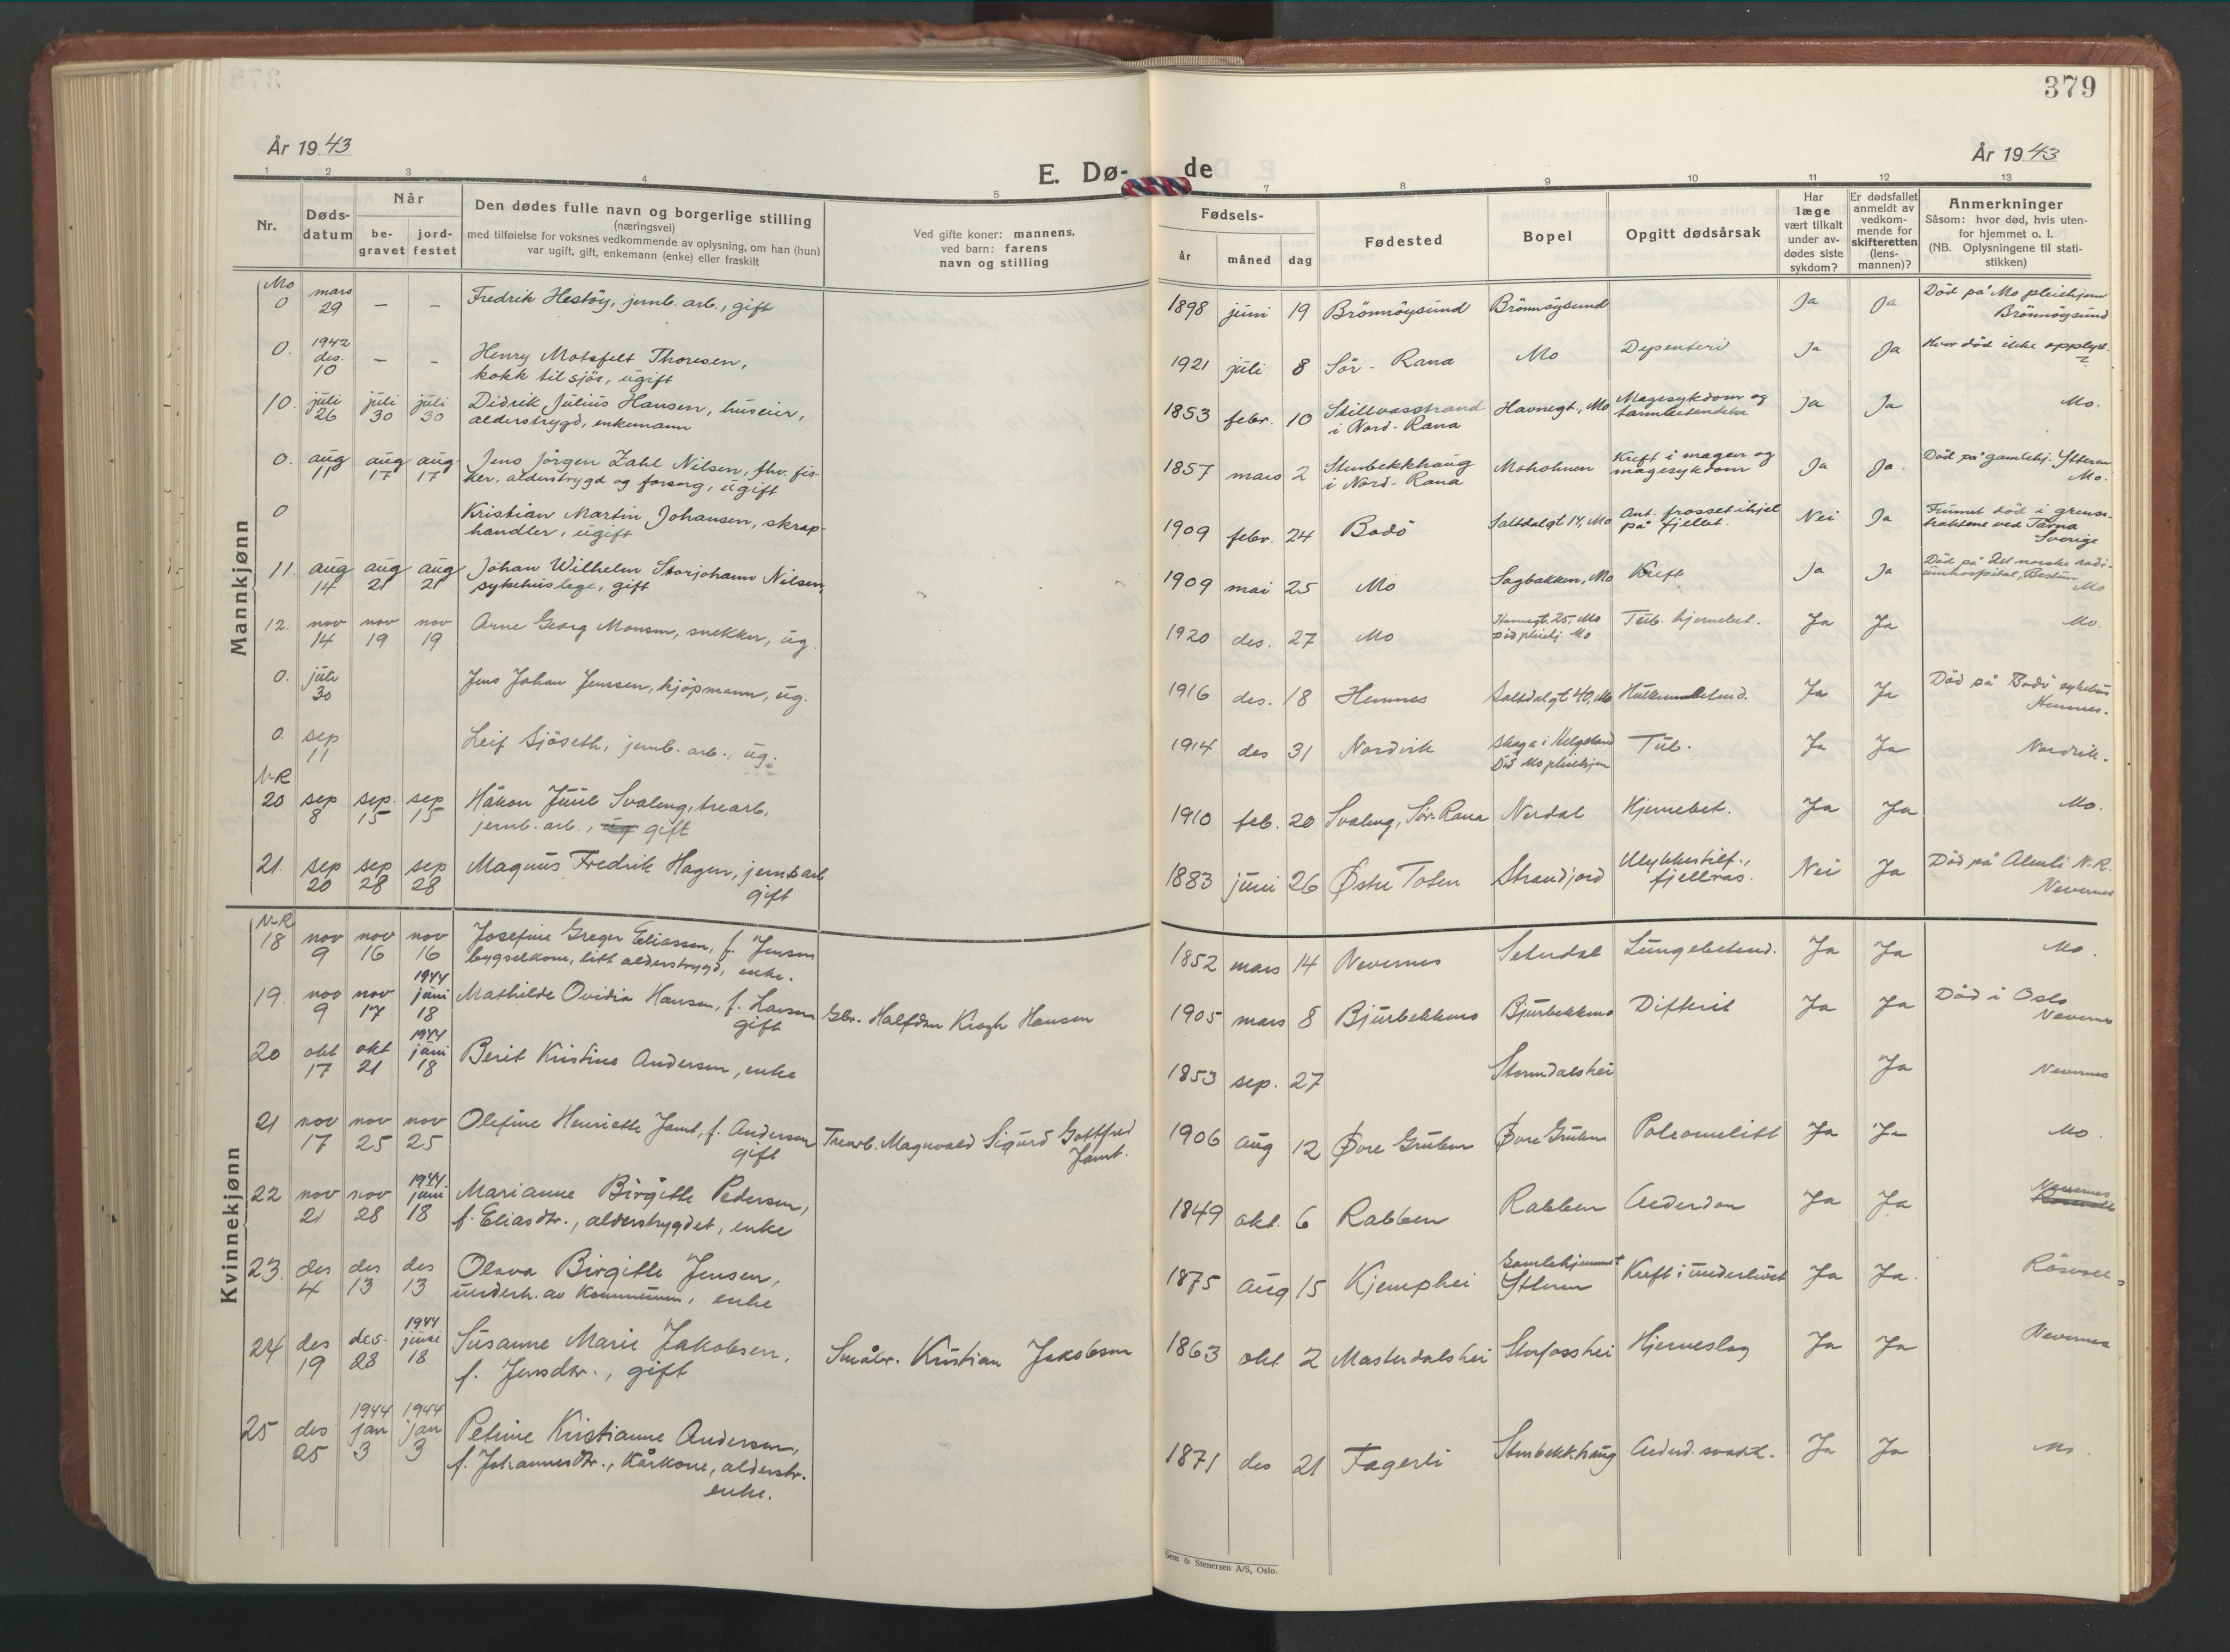 379
År 1943
År 1943
E. Dø- de
1 2 3 4 5 7 8 9 10 11 12 13
Nr.
Døds-
datum
Når
be-
gravet
jord-
festet
Den dødes fulle navn og borgerlige stilling
(næringsvei)
med tilføielse for voksnes vedkommende av oplysning, om han (hun)
var ugift, gift, enkemann (enke) eller fraskilt
Ved gifte koner: mannens,
ved barn: farens
navn og stilling
Fødsels-
år måned dag
Fødested
Bopel
Opgitt dødsårsak
Har
læge
vært tilkalt
under av-
dødes siste
sykdom?
Er dødsfallet
anmeldt av
vedkom-
mende for
skifteretten
(lens-
mannen)?
Anmerkninger
Såsom: hvor død, hvis uten-
for hjemmet o. l.
(NB. Oplysningene til stati-
stikken)
Mannkjønn
Mo
0 mars 29 — — Fredrik Hestöy, jernb. arb., gift 1898 juni 19 Brönnöysund Brönnöysund Ja Ja Död på Mo pleiehjem
Brönnöysund
0. 1942 des. 10 — — Henry Motzfelt Thoresen,
kokk til sjös, ugift 1921 juli 8 Sör-Rana Mo Dysenteri Ja Ja Hvor död ikke opplyst.
10. juli 26 juli 30 juli 30 Didrik Julius Hansen, huseier,
alderstrygd, enkemann 1853 febr. 10 Stillvasstrand
i Nord-Rana Havnegt., Mo Magesykdom og
tarmbetendelse Ja Ja Mo.
0. aug 11 aug 17 aug 17 Jens Jörgen Zahl Nilsen, fhv. fis-
ker, alderstrygd og forsorg, ugift 1857 mars 2 Stenbekkhaug
i Nord-Rana Moholmen Kreft i magen og
magesykdom Ja Ja. Död på gamlehj. Ytteren
Mo.
0 Kristian Martin Johansen, skrap-
handler, ugift 1909 febr. 24 Bodö Saltdalgt 14, Mo Ant. frosset ihjel
på fjellet. Nei Ja Funnet död i grense-
traktene ved Tärna
Sverige
11. aug 14 aug 21 aug 21 Johan Wilhelm Storjohann Nilsen,
sykehuslege, gift 1909 mai 25 Mo Sagbakken, Mo Kreft Ja Ja Död på Det norske radi-
umhospital, Bestun
Mo
12. nov 14 nov 19 nov 19 Arne Georg Monsen, snekker, ug. 1920 des. 27 Mo Havnegt. 25, Mo
Död pleiehj. Mo Tub. hjernebet. Ja Ja Mo.
0. juli 30 Jens Johan Jenssen, kjöpmann, ug. 1916 des. 18 Hemnes Saltdalgt 40, Mo Ja Ja Död på Bodö sykehus
Hemnes.
0. sep 11 Leif Sjöseth, jernb. arb., ug. 1914 des 31 Nordvik Skaga i Helgeland
Död Mo pleiehjem Tub. Ja Ja Nordvik.
N-R
20 sep 8 sep. 15 sep 15 Håkon Juul Svaleng, trearb,
jernb. arb., ug gift 1910 feb. 20 Svaleng, Sör-Rana Nerdal Hjernebet. Ja Ja Mo.
21. sep 20 sep 28 sep 28 Magnus Fredrik Hagen, jernb arb
gift 1883 juni 26 Østre Toten Strandjord Ulykkestilf.,
fjellras. Nei Ja Död på Almli N-R.
Nevernes
Kvinnekjønn
N-R
18 nov 9 nov 16 nov 16 Josefine Greger Eliassen, f. Jensen
bygselkone, litt alderstrygd, enke. 1852 mars 14 Nevernes Seterdal Lungebetend. Ja Ja Mo.
19. nov 9 nov 17 1944 juni 18 Mathilde Ovidia Hansen, f. Larsen
gift Gbr. Halfdan Krogh Hansen 1905 mars 8 Bjurbekkmo Bjurbekkmo Difterit Ja Ja Död i Oslo
Nevernes
20 okt 17 okt 21 1944 juni 18 Berit Kristine Andersen, enke 1853 sep. 27 Stormdalshei Ja Nevernes
21 nov 17 nov 25 nov 25 Olefine Henriette Jamt, f. Andersen
gift Trearb. Magnvald Sigurd Gottfred
Jamt. 1906 aug 12 Øvre Gruben Øvre Gruben Poleomelitt Ja Ja Mo.
22 nov 21 nov 28 1944. juni 18 Marianne Birgitte Pedersen,
f. Eliasdtr., alderstrygdet, enke 1849 okt. 6 Rabben Rabben Alderdom Ja Ja Nevernes
23. des 4 des 13 des 13 Olava Birgitte Jensen,
underh. av kommunen, enke 1875 aug 15 Kjemphei Gamlehjemmet
Ytteren Kreft i underlivet Ja Ja. Rösvoll
24 des 19 des. 28 1944 juni 18 Susanne Marie Jakobsen,
f. Jensdtr., gift Småbr. Kristian Jakobsen 1863 okt 2 Masterdalshei Storfosshei Hjerneslag Ja Ja Nevernes
25 des 25 1944 jan 3 1944 jan 3 Petrine Kristianne Andersen,
f. Johannesdtr., kårkone, alderstr.
enke. 1871 des 21 Fagerli Stenbekkhaug Alderd. svakh. Ja Ja Mo.
Sem & Stenersen A/S, Oslo.